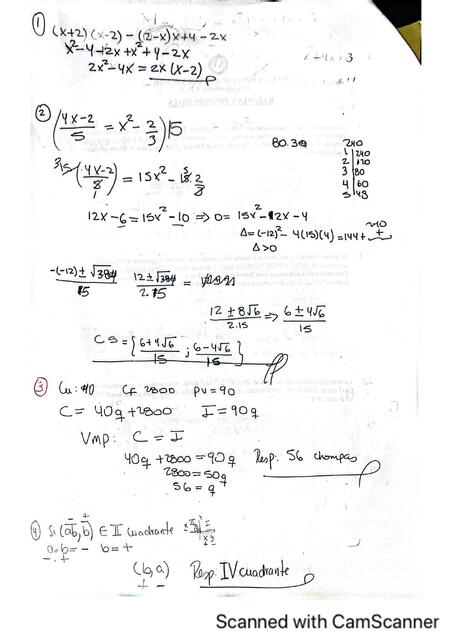 ① (x+2)(x-2) - (2-x)x+4-2x
x²-4-2x+x²+4-2x
2x²-4x = 2x(x-2)
② (4x-2/5 = x² - 2/3) 15
80.3
240
1 | 240
2 | 120
3 | 80
4 | 60
5 | 48
3 15 (4x-2/5) = 15x² - 15 2/3
12x-6 = 15x²-10 ⇒ 0 = 15x²-12x-4
Δ=(-12)²-4(15)(4)=144+240
Δ>0
-(-12)±√384/15 12±√384/2.15 =
12±8√6/2.15 ⇒ 6±4√6/15
CS = {6+4√6/15 ; 6-4√6/15}
③ Cu: 40 CF 2800 PV=90
C = 40q+2800 I=90q
Vmp: C = I
40q+2800=90q Resp: 56 chompas
2800=50q
56 = q
④ Si (ab, b) ∈ II cuadrante
a.b = - b = +
- . +
(b, a) Resp: IV cuadrante
+ -
Scanned with CamScanner